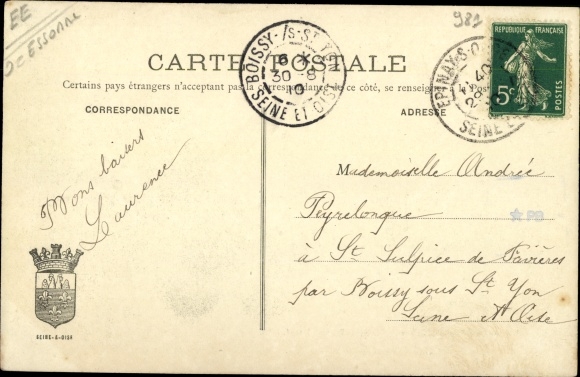 EE
ESSONNE
987
CARTE POSTALE
Certains pays étrangers n'acceptant pas la correspondance de ce côté, se renseigner à la Poste
CORRESPONDANCE
ADRESSE
BOISSY-S-ST
6
30-8
10
SEINE ET OISE
EPINAY-S-O
SEINE ET
REPUBLIQUE FRANÇAISE
5c
POSTES
Mons baisers
Laurence
Mademoiselle Andrée
Peyrelongue
à St Sulpice de Favières
par Boissy sous St Yon
Seine et Oise
PB
SEINE-&-OISE